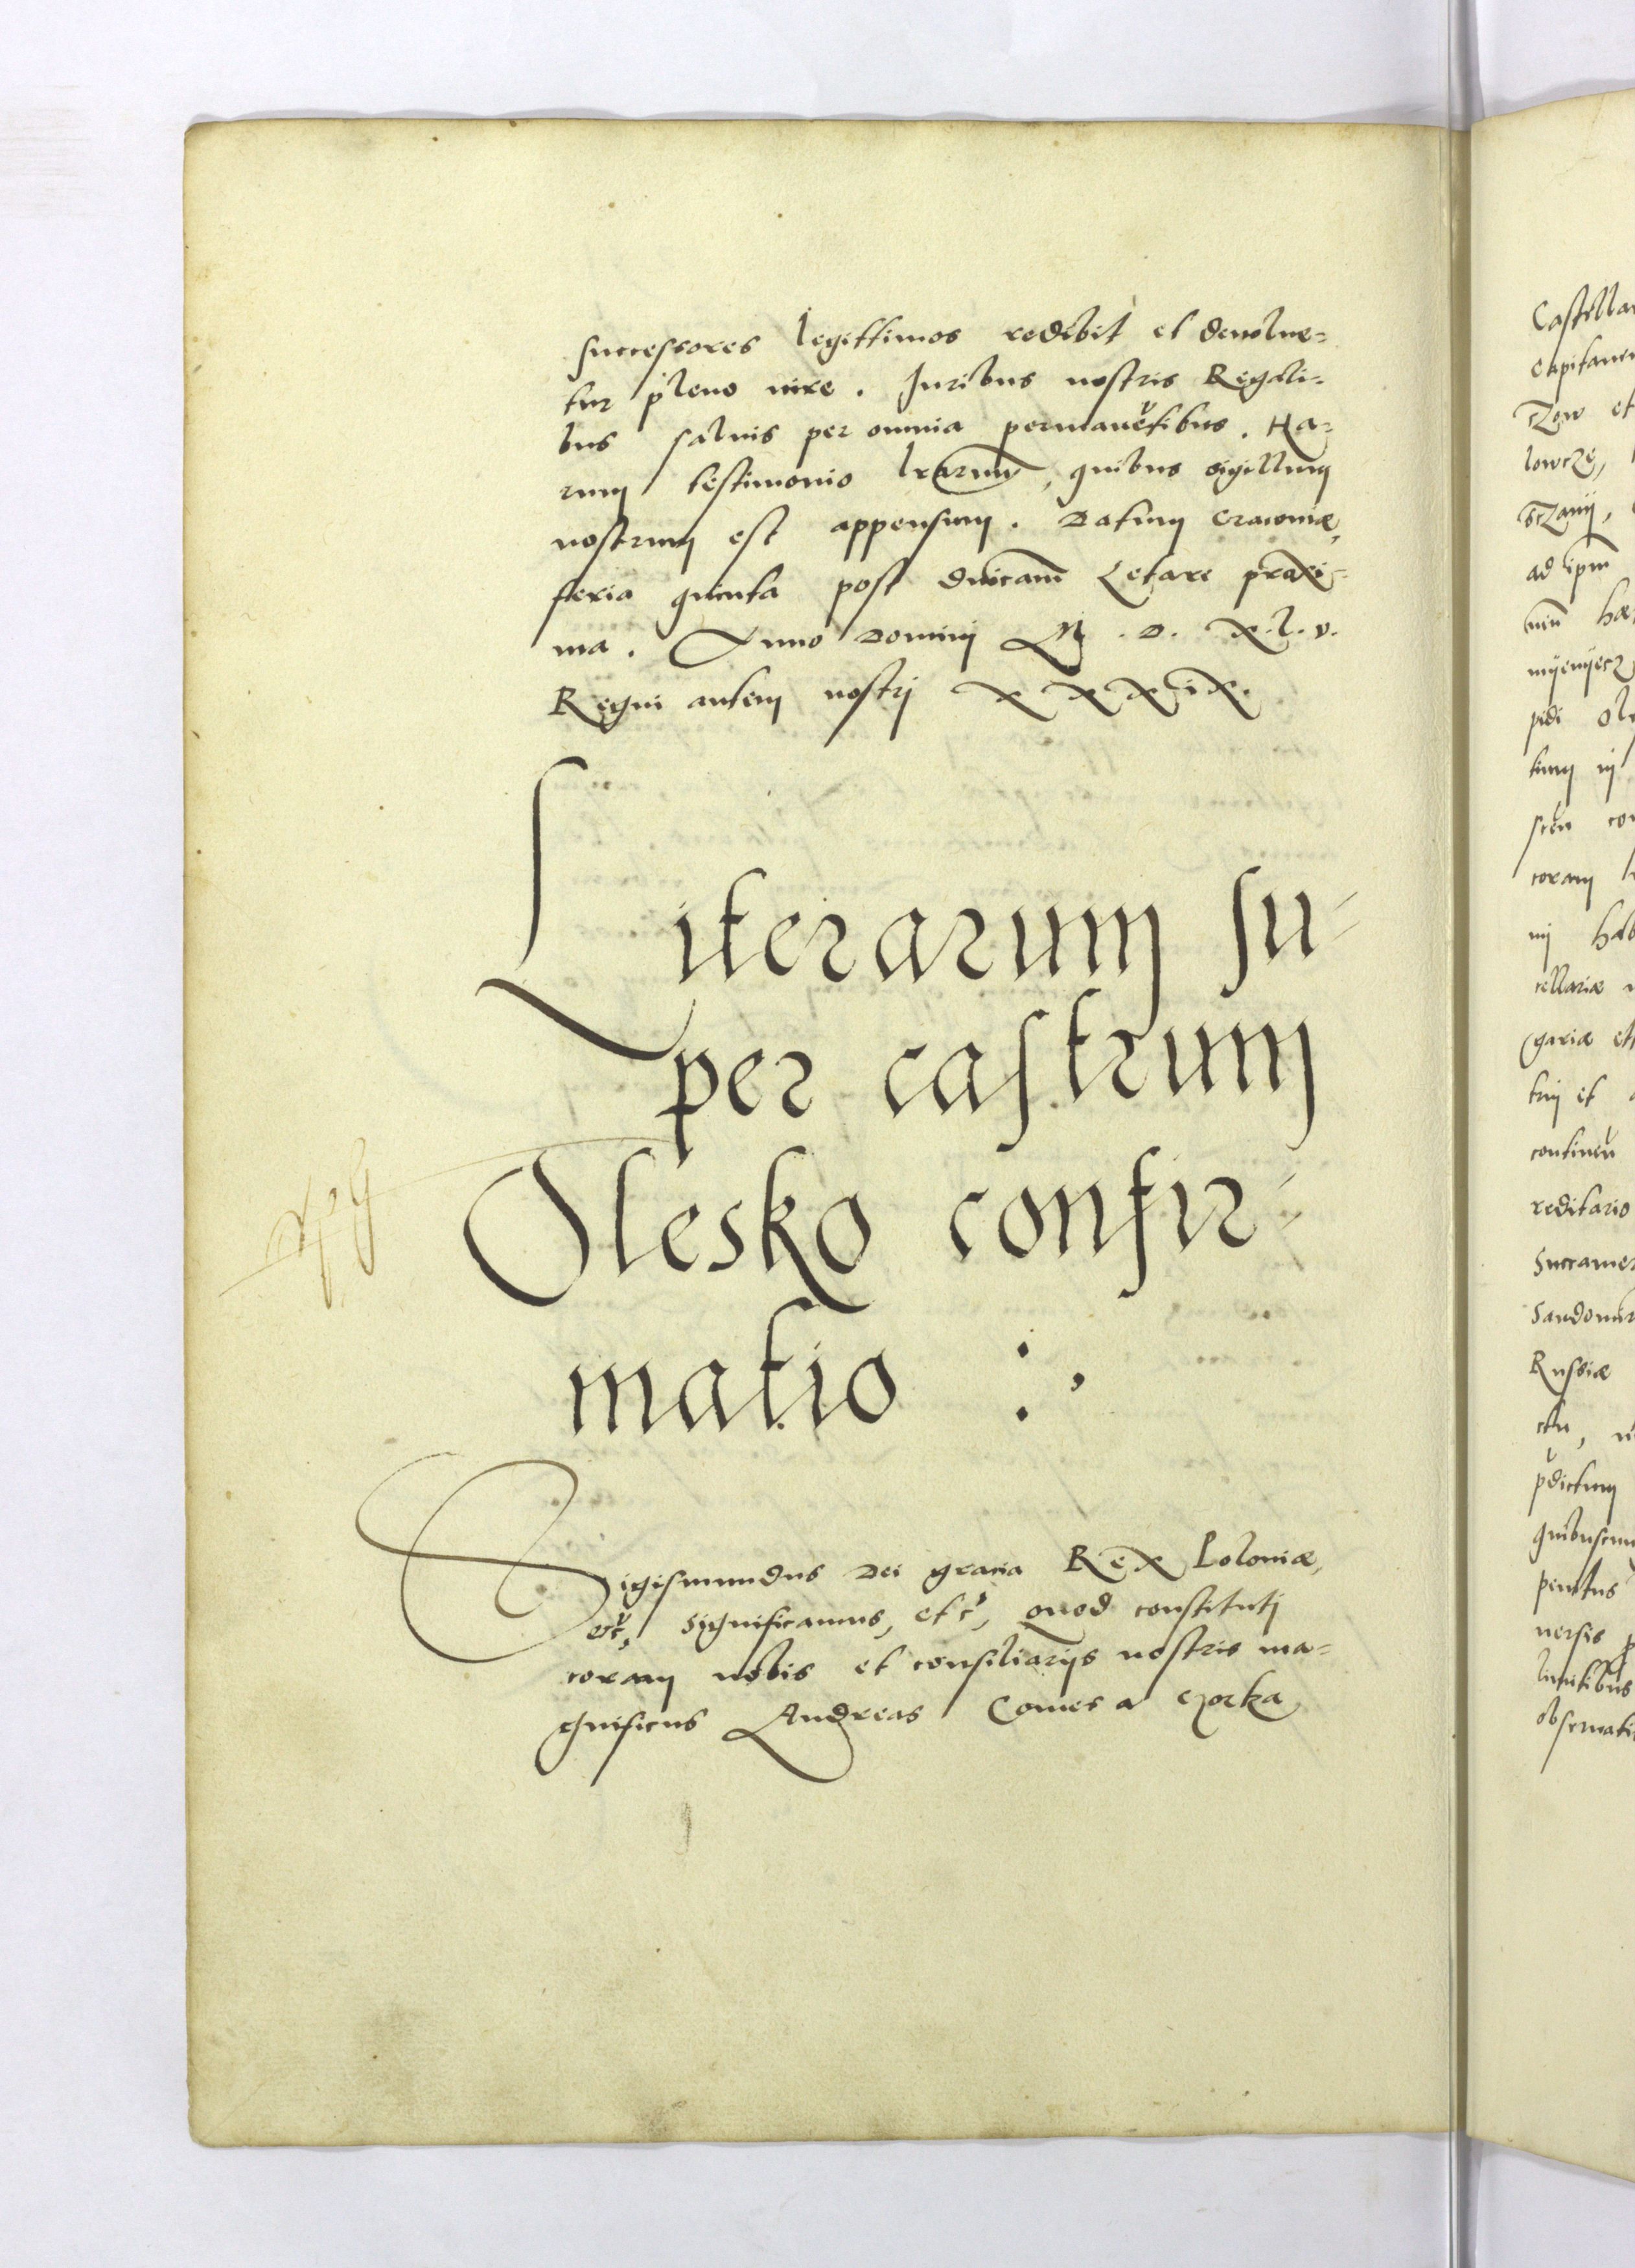 successores legittimos redibit et deuolue-
tur pleno iure. Iuribus nostris Regali-
bus saluis per omnia permanētibus. Ha-
rum testimonio lrarum, quibus sigillum
nostrum est appensum. Datum Cracouiæ,
feria quinta post dnicam Letare proxi-
ma. Anno Domini M. D. X.L.V.
Regni autem nostri XXXIX.
Literarum su-
per castrum
Olesko confir-
matio :,
Sigismundus Dei gracia Rex Poloniæ,
etc, Significamus, etc, quod constituti
coram nobis et consiliarijs nostris ma-
gnificus Andreas Comes a Gorka
Castella
Capitane
czow et
lowcze,
sczanij,
ad ipm
nin hæ
myenyecz
pidi Ole
tium ij
scen co
coram
nij hab
cellariæ
gariæ et
tui et
continen
reditario
Succamer
Sandomir
Russiæ
ctu,
pdictum
quibuscun
penitus
uersis
limitibus
obseruati